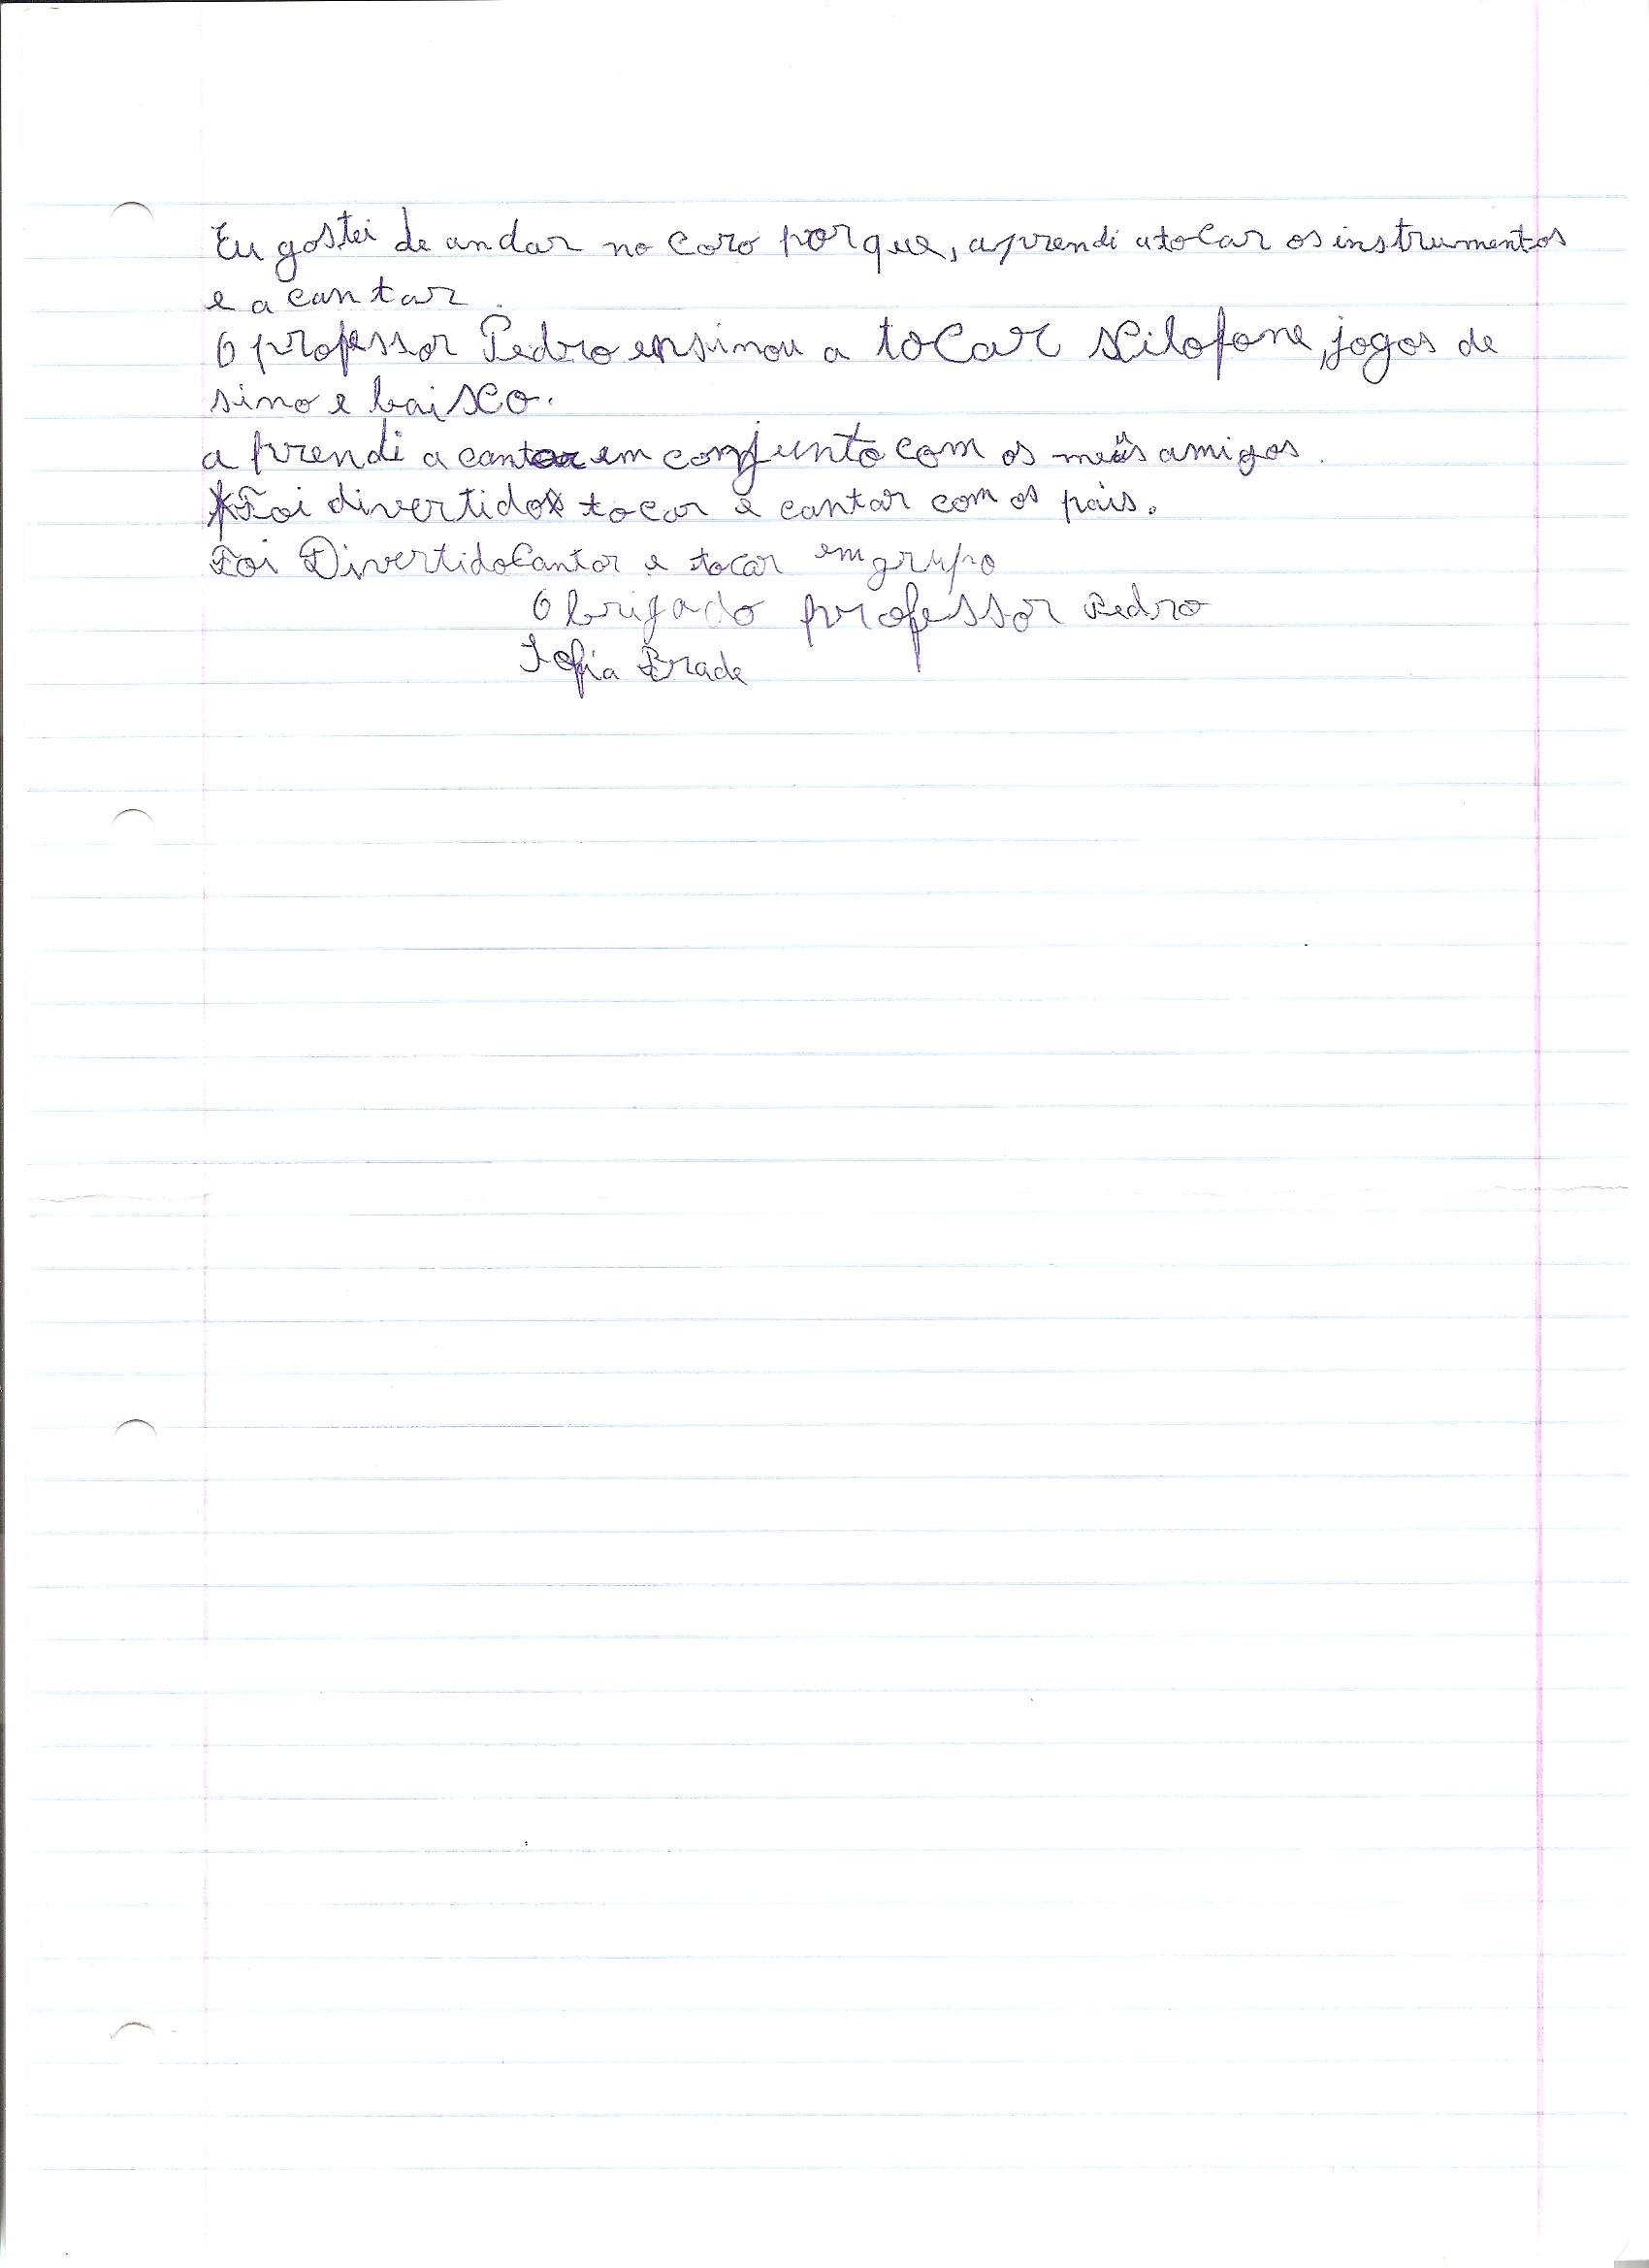 Eu gostei de andar no coro porque, aprendi a tocar os instrumentos
e a cantar.
O professor Pedro ensinou a tocar xilofone, jogos de
sino e baixo.
aprendi a cantar em conjunto com os meus amigos.
Foi divertido tocar e cantar com os pais.
Foi Divertido Cantar e tocar em grupo
Obrigado professor Pedro
Sofia Brade